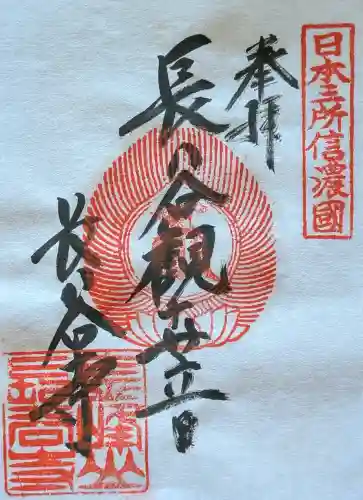 日本三所信濃國
奉拝
長谷觀世音
長谷寺